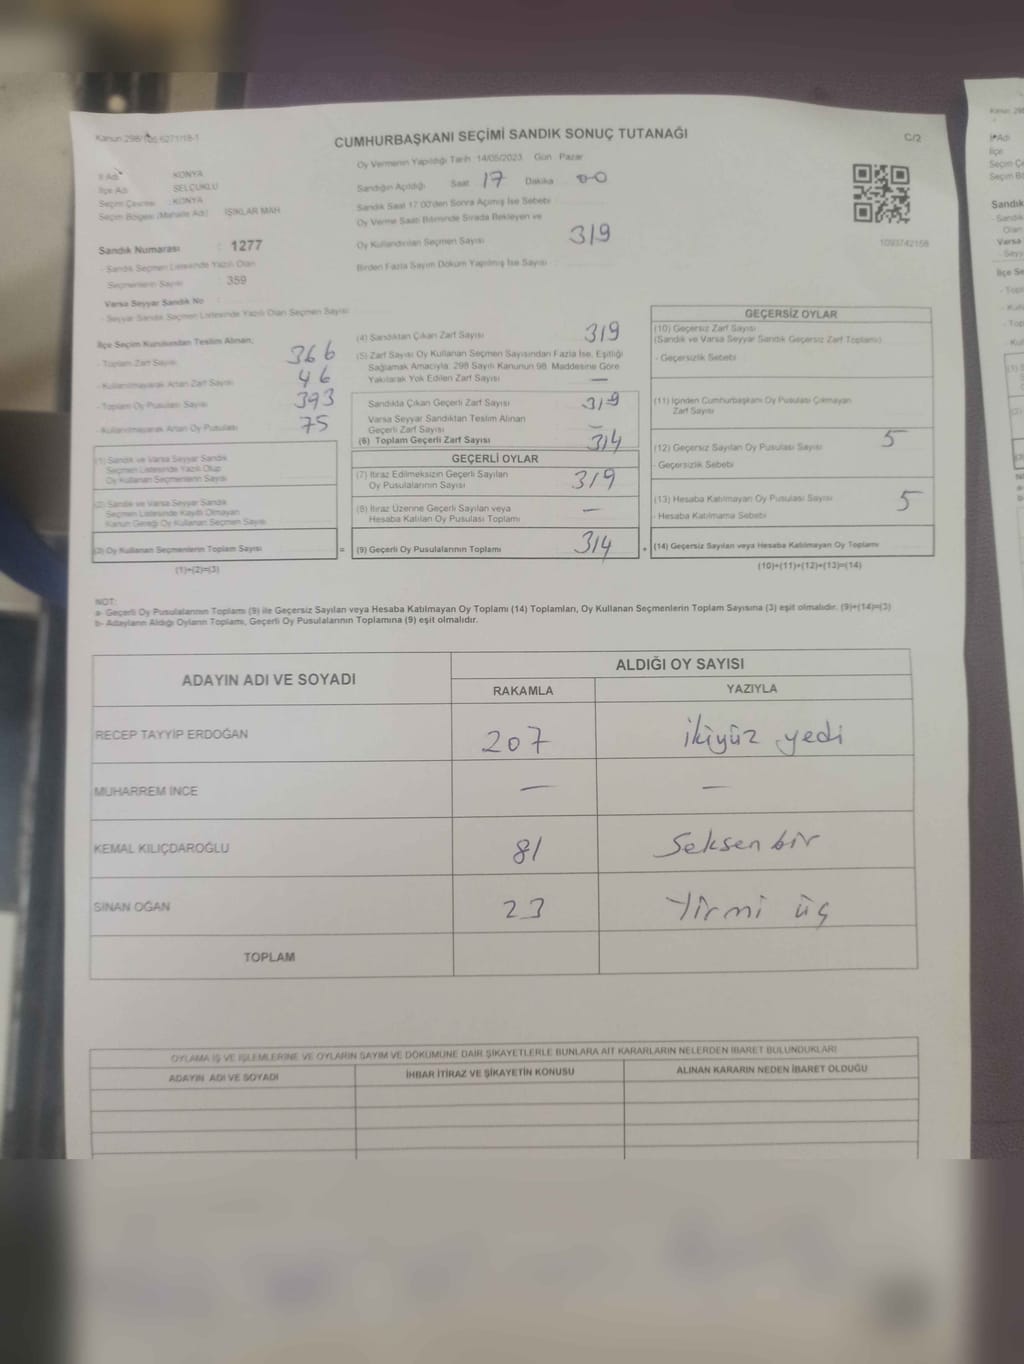 Kanun 298/105 6271/18-1
CUMHURBAŞKANI SEÇİMİ SANDIK SONUÇ TUTANAĞI
C/2
İl Adı : KONYA
İlçe Adı : SELÇUKLU
Seçim Çevresi : KONYA
Seçim Bölgesi (Mahalle Adı) : IŞIKLAR MAH
Sandık Numarası : 1277
- Sandık Seçmen Listesinde Yazılı Olan
Seçmenlerin Sayısı : 359
Varsa Seyyar Sandık No :
- Seyyar Sandık Seçmen Listesinde Yazılı Olan Seçmen Sayısı
Oy Vermenin Yapıldığı Tarih :14/05/2023 Gün : Pazar
Sandığın Açıldığı Saat 17 Dakika 00
Sandık Saat 17.00'den Sonra Açılmış İse Sebebi :
Oy Verme Saati Bitiminde Sırada Bekleyen ve
Oy Kullandırılan Seçmen Sayısı : 319
Birden Fazla Sayım Döküm Yapılmış İse Sayısı :
1093742158
İlçe Seçim Kurulundan Teslim Alınan;
- Toplam Zarf Sayısı 366
- Kullanılmayarak Artan Zarf Sayısı 46
- Toplam Oy Pusulası Sayısı 393
- Kullanılmayarak Artan Oy Pusulası 75
(1) Sandık ve Varsa Seyyar Sandık
Seçmen Listesinde Yazılı Olup
Oy Kullanan Seçmenlerin Sayısı
(2) Sandık ve Varsa Seyyar Sandık
Seçmen Listesinde Kayıtlı Olmayan
Kanun Gereği Oy Kullanan Seçmen Sayısı
(3) Oy Kullanan Seçmenlerin Toplam Sayısı
(1)+(2)=(3)
(4) Sandıktan Çıkan Zarf Sayısı 319
(5) Zarf Sayısı Oy Kullanan Seçmen Sayısından Fazla İse, Eşitliği
Sağlamak Amacıyla; 298 Sayılı Kanunun 98. Maddesine Göre
Yakılarak Yok Edilen Zarf Sayısı —
Sandıkta Çıkan Geçerli Zarf Sayısı 319
Varsa Seyyar Sandıktan Teslim Alınan
Geçerli Zarf Sayısı —
(6) Toplam Geçerli Zarf Sayısı 314
GEÇERLİ OYLAR
(7) İtiraz Edilmeksizin Geçerli Sayılan
Oy Pusulalarının Sayısı 319
(8) İtiraz Üzerine Geçerli Sayılan veya
Hesaba Katılan Oy Pusulası Toplamı —
= (9) Geçerli Oy Pusulalarının Toplamı 314
GEÇERSİZ OYLAR
(10) Geçersiz Zarf Sayısı
(Sandık ve Varsa Seyyar Sandık Geçersiz Zarf Toplamı)
- Geçersizlik Sebebi
(11) İçinden Cumhurbaşkanı Oy Pusulası Çıkmayan
Zarf Sayısı
(12) Geçersiz Sayılan Oy Pusulası Sayısı 5
- Geçersizlik Sebebi
(13) Hesaba Katılmayan Oy Pusulası Sayısı 5
- Hesaba Katılmama Sebebi
+ (14) Geçersiz Sayılan veya Hesaba Katılmayan Oy Toplamı
(10)+(11)+(12)+(13)=(14)
NOT:
a- Geçerli Oy Pusulalarının Toplamı (9) ile Geçersiz Sayılan veya Hesaba Katılmayan Oy Toplamı (14) Toplamları, Oy Kullanan Seçmenlerin Toplam Sayısına (3) eşit olmalıdır. (9)+(14)=(3)
b- Adayların Aldığı Oyların Toplamı, Geçerli Oy Pusulalarının Toplamına (9) eşit olmalıdır.
ADAYIN ADI VE SOYADI
ALDIĞI OY SAYISI
RAKAMLA YAZIYLA
RECEP TAYYİP ERDOĞAN 207 ikiyüz yedi
MUHARREM İNCE — —
KEMAL KILIÇDAROĞLU 81 Seksen bir
SİNAN OĞAN 23 Yirmi üç
TOPLAM
OYLAMA İŞ VE İŞLEMLERİNE VE OYLARIN SAYIM VE DÖKÜMÜNE DAİR ŞİKAYETLERLE BUNLARA AİT KARARLARIN NELERDEN İBARET BULUNDUKLARI
ADAYIN ADI VE SOYADI İHBAR İTİRAZ VE ŞİKAYETİN KONUSU ALINAN KARARIN NEDEN İBARET OLDUĞU